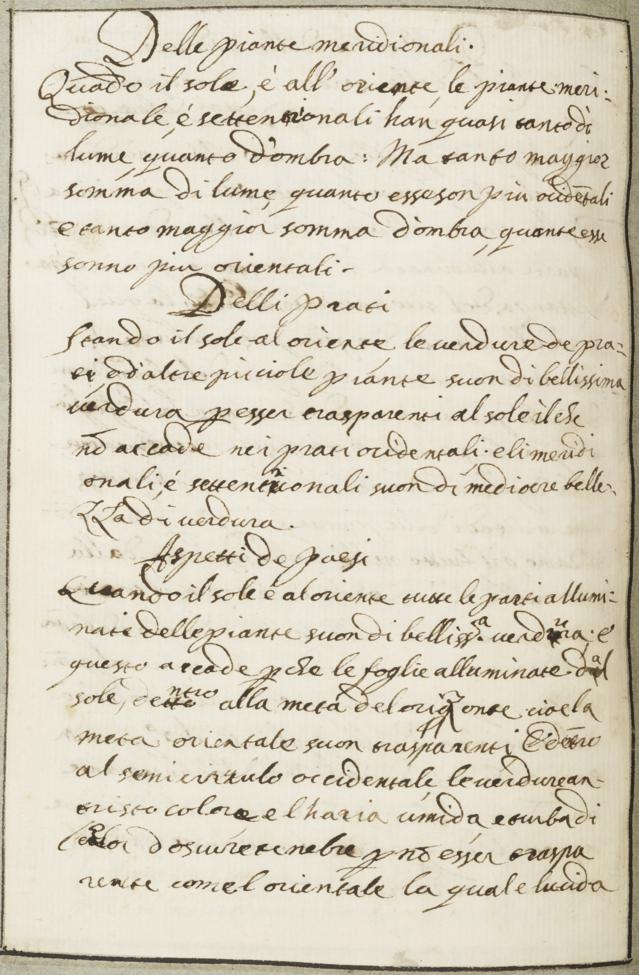 Delle piante meridionali.
Quādo il sole, è all' oriente, le piante meri:
dionale, é settentrionali han, quasi tanto di
lume, quanto d'ombra: Ma tanto maggior
somma di lume, quanto esse son piu ocidētali
e tanto maggior somma d'ombra, quante esse
sonno piu orientali.
Delli prati
Stando il sole al oriente le verdure de pra=
ti, od'altre picciole piante suon di bellissima
verdura p esser trasparenti al sole ilche
nō accade nei prati ocidentali. e li meridi
onali, é settentrionali suon di mediocre belle-
zza di verdura.
Aspetti de paesi
Quando il sole è al oriente tutte le parti allumi=
nate delle piante suon di belliss.a verdura. e'
questo accade p che le foglie alluminate dal
sole, dentro alla metà del orizonte cioe la
metà orientale suon trasparenti E dētro
al semicirculo occidentale le verdure an-
tristo colore e l haria umida e turba di
color d oscure tenebre p nō esser traspa
rente come l orientale la quale lucida